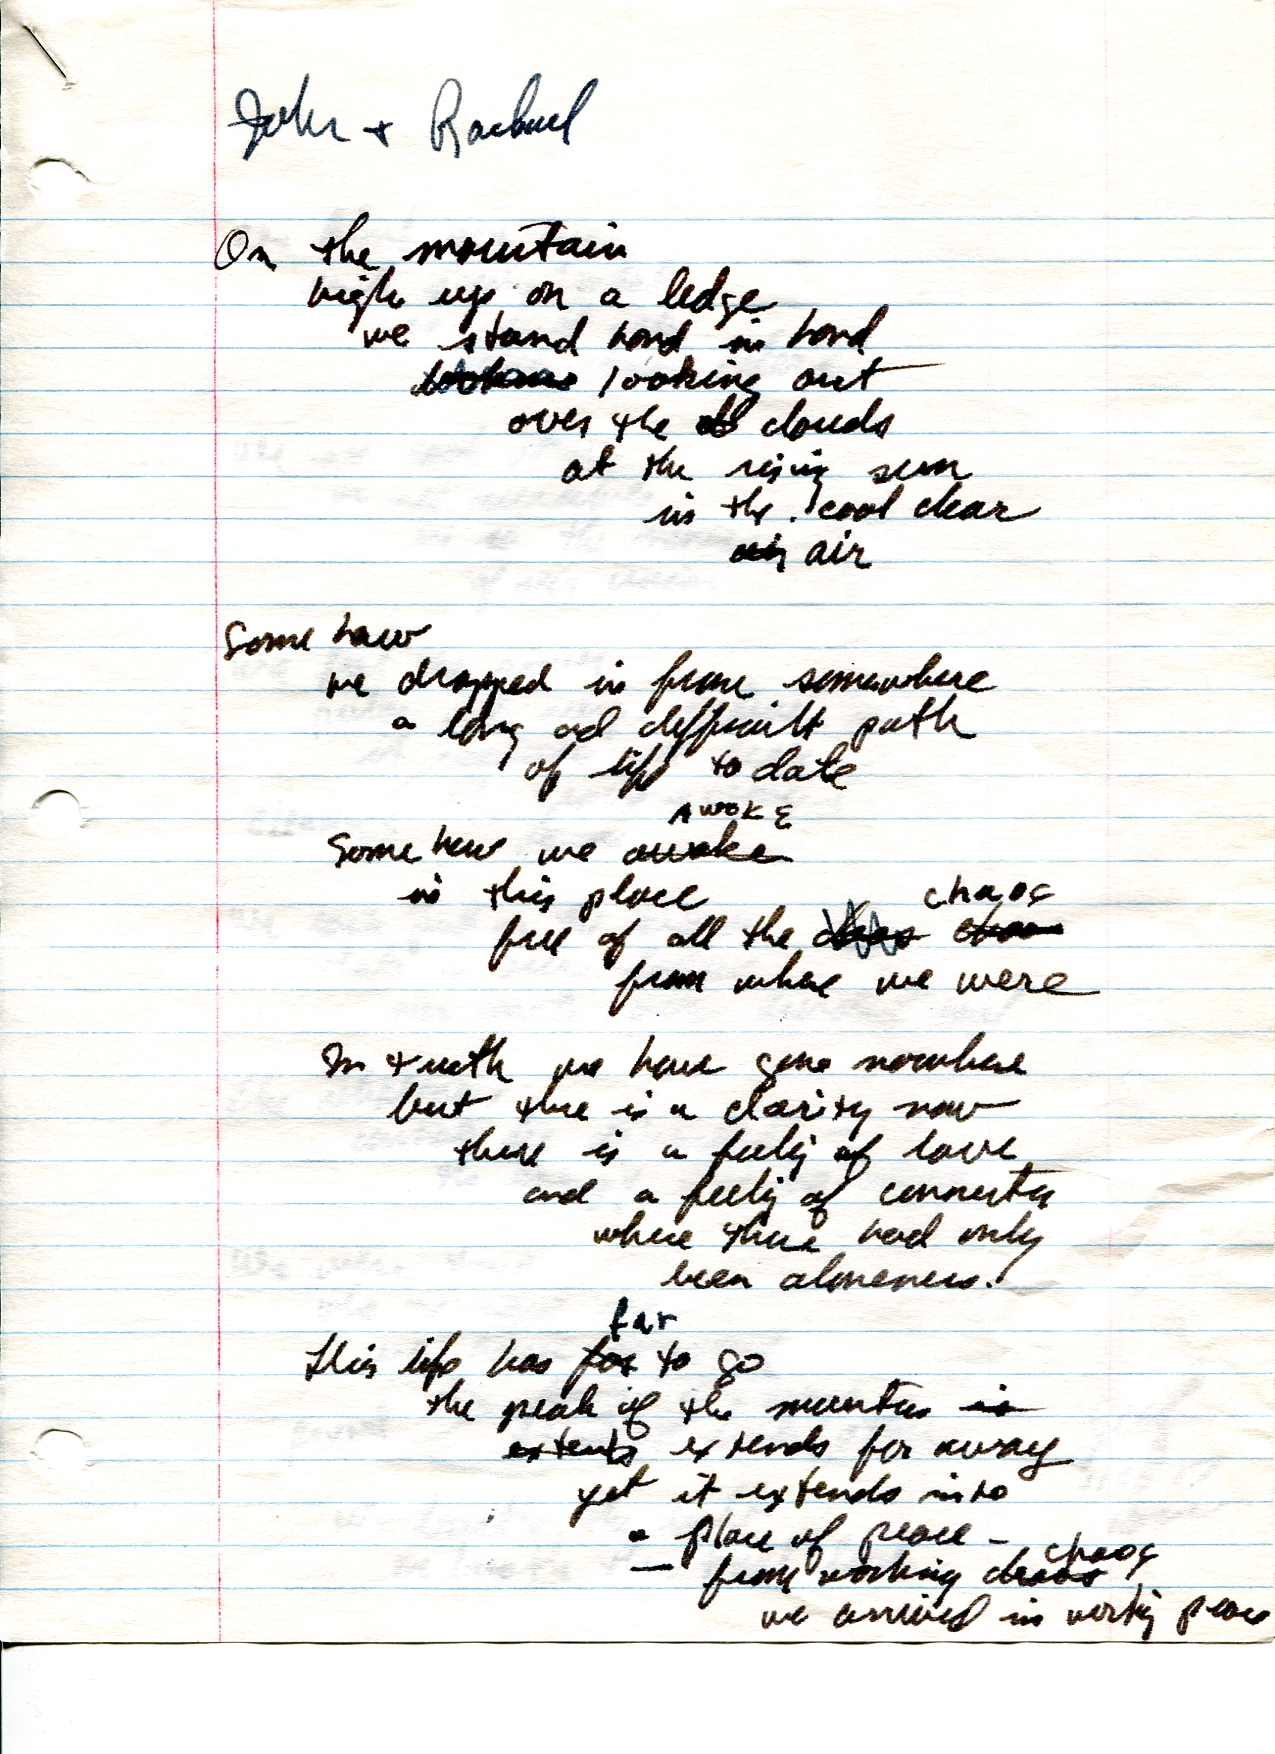 John + Rachael
On the mountain
high up on a ledge
we stand hand in hand
looking out
over the clouds
at the rising sun
in the cool clear
air
Some how
we dropped in from somewhere
a long ad difficult path
of life to date
AWOKE
Some how we awoke
in this place
chaos
free of all the
from where we were
In truth we have gone nowhere
but there is a clarity now
there is a feeling of love
and a feeling of
where there had only
been aloneness.
far
this life has far to go
the peak of the mountain is
extends extends far away
yet it extends into
a place of peace -
chaos
— from working chaos
we arrived in working peace